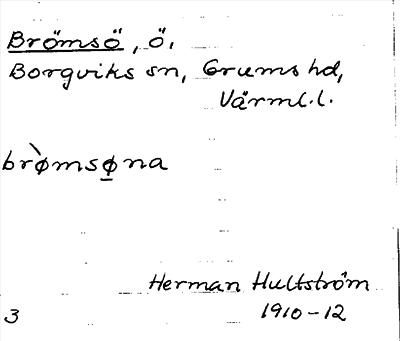 Brömsö, ö.
Borgviks sn, Grums hd,
Värml. l.
brø̀msø̲na
Herman Hultström
1910-12
3